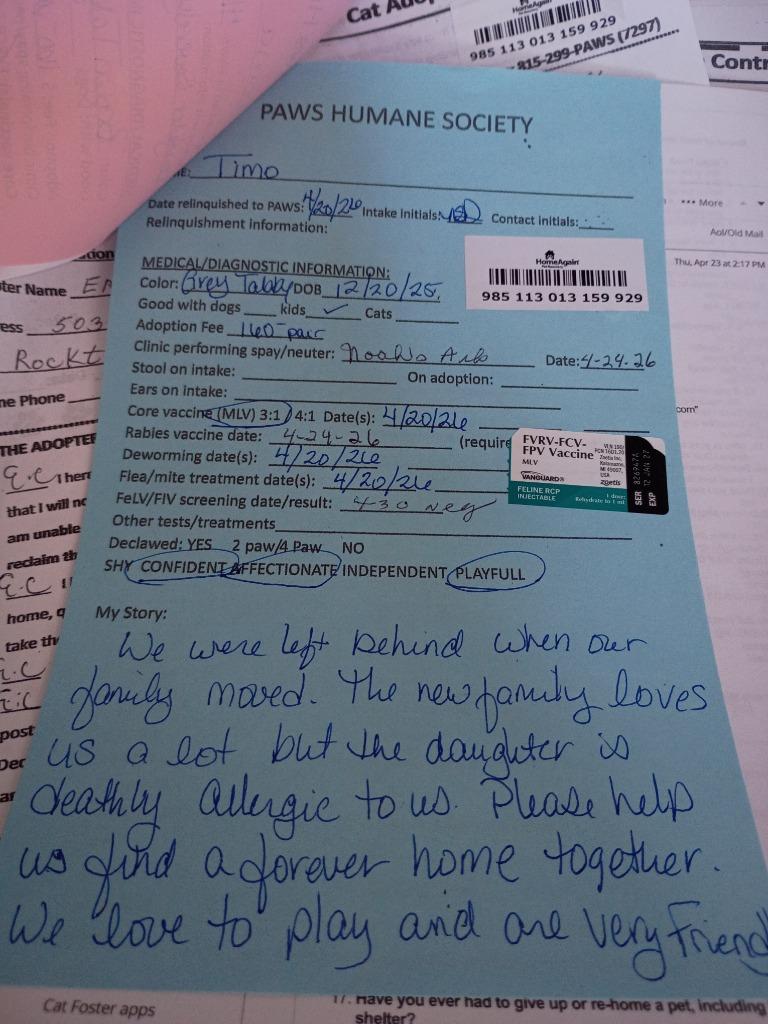 Cat Ado
HomeAgain
985 113 013 159 929
815-299-PAWS (7297)
Contr
PAWS HUMANE SOCIETY
E: Timo
Date relinquished to PAWS: 4/20/26 Intake Initials: Contact initials:
Relinquishment information:
••• More
Aol/Old Mail
Thu, Apr 23 at 2:17 PM
MEDICAL/DIAGNOSTIC INFORMATION:
Color: Grey Tabby DOB 12/20/25
HomeAgain
985 113 013 159 929
Good with dogs ____ kids ✓ Cats ____
Adoption Fee 160- pair
Clinic performing spay/neuter: Noah's Ark Date: 4-24-26
Stool on intake: On adoption:
Ears on intake:
Core vaccine (MLV) 3:1 / 4:1 Date(s): 4/20/26
Rabies vaccine date: 4-24-26 (require
Deworming date(s): 4/20/26
Flea/mite treatment date(s): 4/20/26
FeLV/FIV screening date/result: 4-30 neg
Other tests/treatments
Declawed: YES 2 paw/4 Paw NO
SHY CONFIDENT AFFECTIONATE INDEPENDENT PLAYFULL
FVRV-FCV-
FPV Vaccine
MLV
VANGUARD
zoetis
FELINE RCP
INJECTABLE
1 dose:
Rehydrate to 1 ml
Zoetis Inc.
Kalamazoo,
MI 49007,
USA
SER
EXP 12 JAN 27
com"
My Story:
We were left behind when our
family moved. The new family loves
us a lot but the daughter is
deathly allergic to us. Please help
us find a forever home together.
We love to play and are very friend
ter Name
ess 503
Rockt
ne Phone
THE ADOPTE
E.C I her
that I will no
am unable
reclaim th
E.C
home, q
take th
post
Dec
Cat Foster apps
17. Have you ever had to give up or re-home a pet, including
shelter?